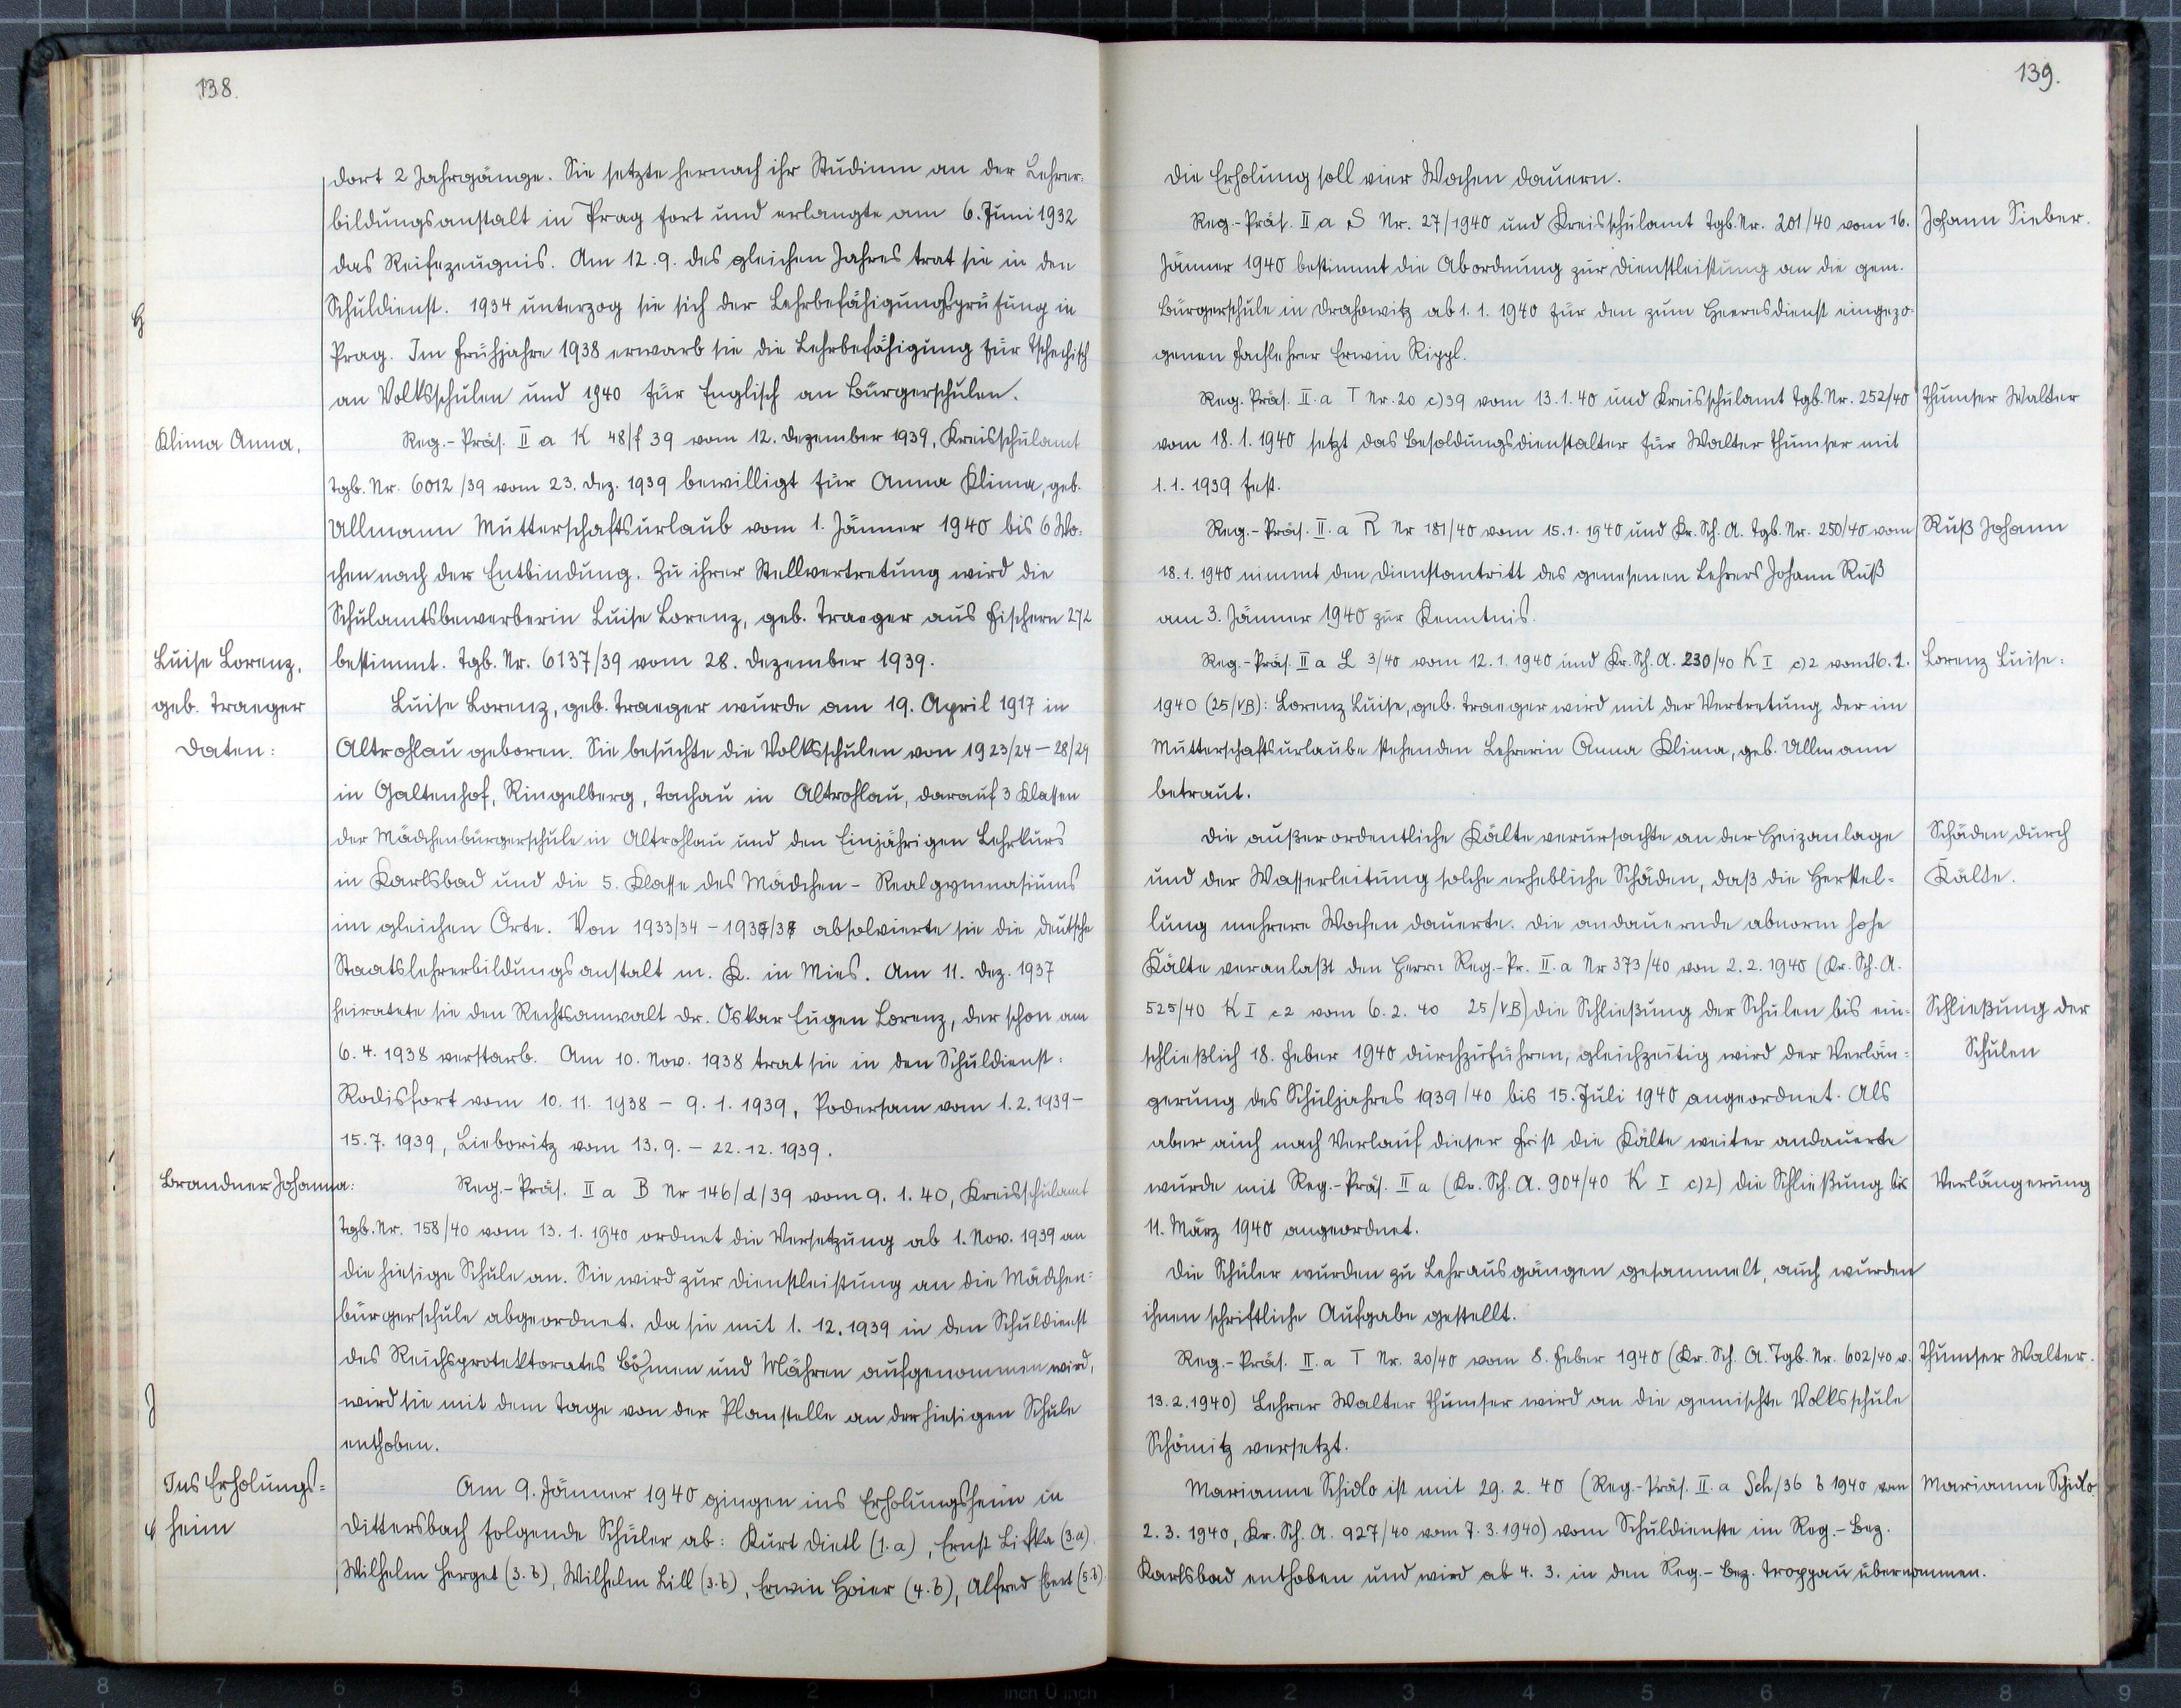 138.
dort 2 Jahrgänge. Sie setzte hernach ihr Studium an der Lehrer-
bildungsanstalt in Prag fort und erlangte am 6. Juni 1932
das Reifezeugnis. Am 12. 9. des gleichen Jahres trat sie in den
Schuldienst. 1934 unterzog sie sich der Lehrbefähigungsprüfung in
Prag. Im Frühjahre 1938 erwarb sie die Lehrbefähigung für Tschechisch
an Volksschulen und 1940 für Englisch an Bürgerschulen.
Klima Anna.
Reg.-Präs. II a K 48/f 39 vom 12. Dezember 1939, Kreisschulamt
Tgb. Nr. 6012/39 vom 23. Dez. 1939 bewilligt für Anna Klima, geb.
Ullmann Mutterschaftsurlaub vom 1. Jänner 1940 bis 6 Wo-
chen nach der Entbindung. Zu ihrer Stellvertretung wird die
Schulamtsbewerberin Luise Lorenz, geb. Traeger aus Fischern 272
bestimmt. Tgb. Nr. 6137/39 vom 28. Dezember 1939.
Luise Lorenz,
geb. Traeger
Daten:
Luise Lorenz, geb. Traeger wurde am 19. April 1917 in
Altrohlau geboren. Sie besuchte die Volksschulen von 1923/24 – 28/29
in Galtenhof, Ringelberg, Tachau in Altrohlau, darauf 3 Klassen
der Mädchenbürgerschule in Altrohlau und den Einjährigen Lehrkurs
in Karlsbad und die 5. Klasse des Mädchen-Realgymnasiums
im gleichen Orte. Von 1933/34 – absolvierte sie die deutsche
Staatslehrerbildungsanstalt m. K. in Mies. Am 11. Dez. 1937
heiratete sie den Rechtsanwalt Dr. Oskar Eugen Lorenz, der schon am
6. 4. 1938 verstarb. Am 10. Nov. 1938 trat sie in den Schuldienst:
Rodisfort vom 10. 11. 1938 – 9. 1. 1939, Podersam vom 1. 2. 1939 –
15. 7. 1939, Lieboritz vom 13. 9. – 22. 12. 1939.
Brandner Johanna:
Reg.-Präs. II a B Nr 146/d/39 vom 9. 1. 40, Kreisschulamt
Tgb. Nr. 158/40 vom 13. 1. 1940 ordnet die Versetzung ab 1. Nov. 1939 an
die hiesige Schule an. Sie wird zur Dienstleistung an die Mädchen-
bürgerschule abgeordnet. Da sie mit 1. 12. 1939 in den Schuldienst
des Reichsprotektorates Böhmen und Mähren aufgenommen wird,
wird sie mit dem Tage von der Planstelle an der hiesigen Schule
enthoben.
Ins Erholungs-
heim
Am 9. Jänner 1940 gingen ins Erholungsheim in
Dittersbach folgende Schüler ab: Kurt Dietl (1.a), Ernst Lifka (3.a)
Wilhelm Herget (3.b), Wilhelm Lill (3.b), Erwin Hoier (4.b), Alfred Ebert (5.b).
139.
Die Erholung soll vier Wochen dauern.
Reg.-Präs. II a S Nr. 27/1940 und Kreisschulamt Tgb. Nr. 201/40 vom 16.
Johann Sieber.
Jänner 1940 bestimmt die Abordnung zur Dienstleistung an die gem.
Bürgerschule in Drahowitz ab 1. 1. 1940 für den zum Heeresdienst eingezo-
genen Fachlehrer Erwin Rippl.
Reg. Präs. II. a T Nr. 20 c)39 vom 13. 1. 40 und Kreisschulamt Tgb. Nr. 252/40
Thumser Walter
vom 18. 1. 1940 setzt das Besoldungsdienstalter für Walter Thumser mit
1. 1. 1939 fest.
Reg.-Präs. II. a R Nr 181/40 vom 15. 1. 1940 und Kr. Sch. A. Tgb. Nr. 250/40 vom
Ruß Johann
18. 1. 1940 nimmt den Dienstantritt des genesenen Lehrers Johann Ruß
am 3. Jänner 1940 zur Kenntnis.
Reg.-Präs. II a L 3/40 vom 12. 1. 1940 und Kr. Sch. A. 230/40 K I c)2 vom 16. 1.
Lorenz Luise:
1940 (25/VB): Lorenz Luise, geb. Traeger wird mit der Vertretung der im
Mutterschaftsurlaube stehenden Lehrerin Anna Klima, geb. Ullmann
betraut.
Die außerordentliche Kälte verursachte an der Heizanlage
Schäden durch
und der Wasserleitung solche erhebliche Schäden, daß die Herstel-
Kälte.
lung mehrere Wochen dauerte. Die andauernde abnorm hohe
Kälte veranlaßt den Herrn Reg.-Pr. II. a Nr 373/40 von 2. 2. 1940 (Kr. Sch. A.
525/40 K I c2 vom 6. 2. 40 25/VB) die Schließung der Schulen bis ein-
Schließung der
schließlich 18. Feber 1940 durchzuführen, gleichzeitig wird der Verlän-
Schulen
gerung des Schuljahres 1939/40 bis 15. Juli 1940 angeordnet. Als
aber auch nach Verlauf dieser Frist die Kälte weiter andauerte
wurde mit Reg.-Präs. II a (Kr. Sch. A. 904/40 K I c)2) die Schließung bis
Verlängerung
11. März 1940 angeordnet.
Die Schüler wurden zu Lehrausgängen gesammelt, auch wurden
ihnen schriftliche Aufgabe gestellt.
Reg.-Präs. II. a T Nr. 20/40 vom 8. Feber 1940 (Kr. Sch. A. Tgb. Nr. 602/40 v.
Thumser Walter.
13. 2. 1940) Lehrer Walter Thumser wird an die gemischte Volksschule
Schömitz versetzt.
Marianne Schidlo ist mit 29. 2. 40 (Reg.-Präs. II. a Sch/36 b 1940 von
Marianne Schidlo
2. 3. 1940, Kr. Sch. A. 927/40 vom 7. 3. 1940) vom Schuldienste im Reg.-Bez.
Karlsbad enthoben und wird ab 4. 3. in den Reg.-Bez. Troppau übernommen.
8 7 6 5 4 3 2 1 inch 0 inch 1 2 3 4 5 6 7 8 9